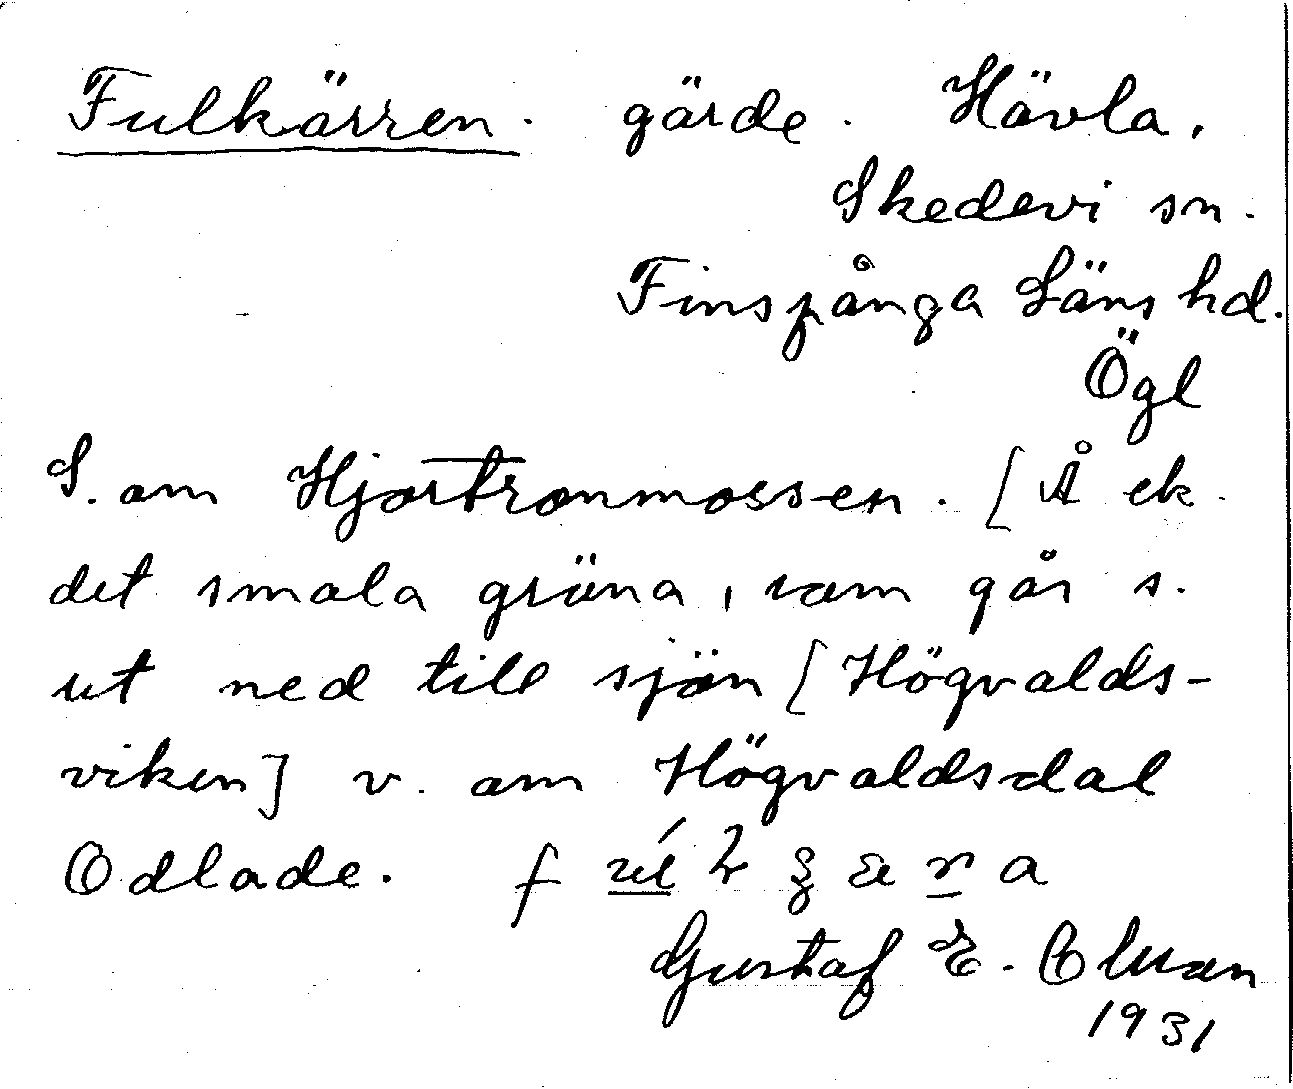 Fulkärren. gärde. Hävla,
Skedevi sn.
Finspånga Läns hd.
Ögl
S. om Hjortronmossen. [Å ek.
det smala gröna, som går s.
ut ned till sjön [Högvalds-
viken] v. om Högvaldsdal
Odlade.
Gustaf E. Olsson
1931